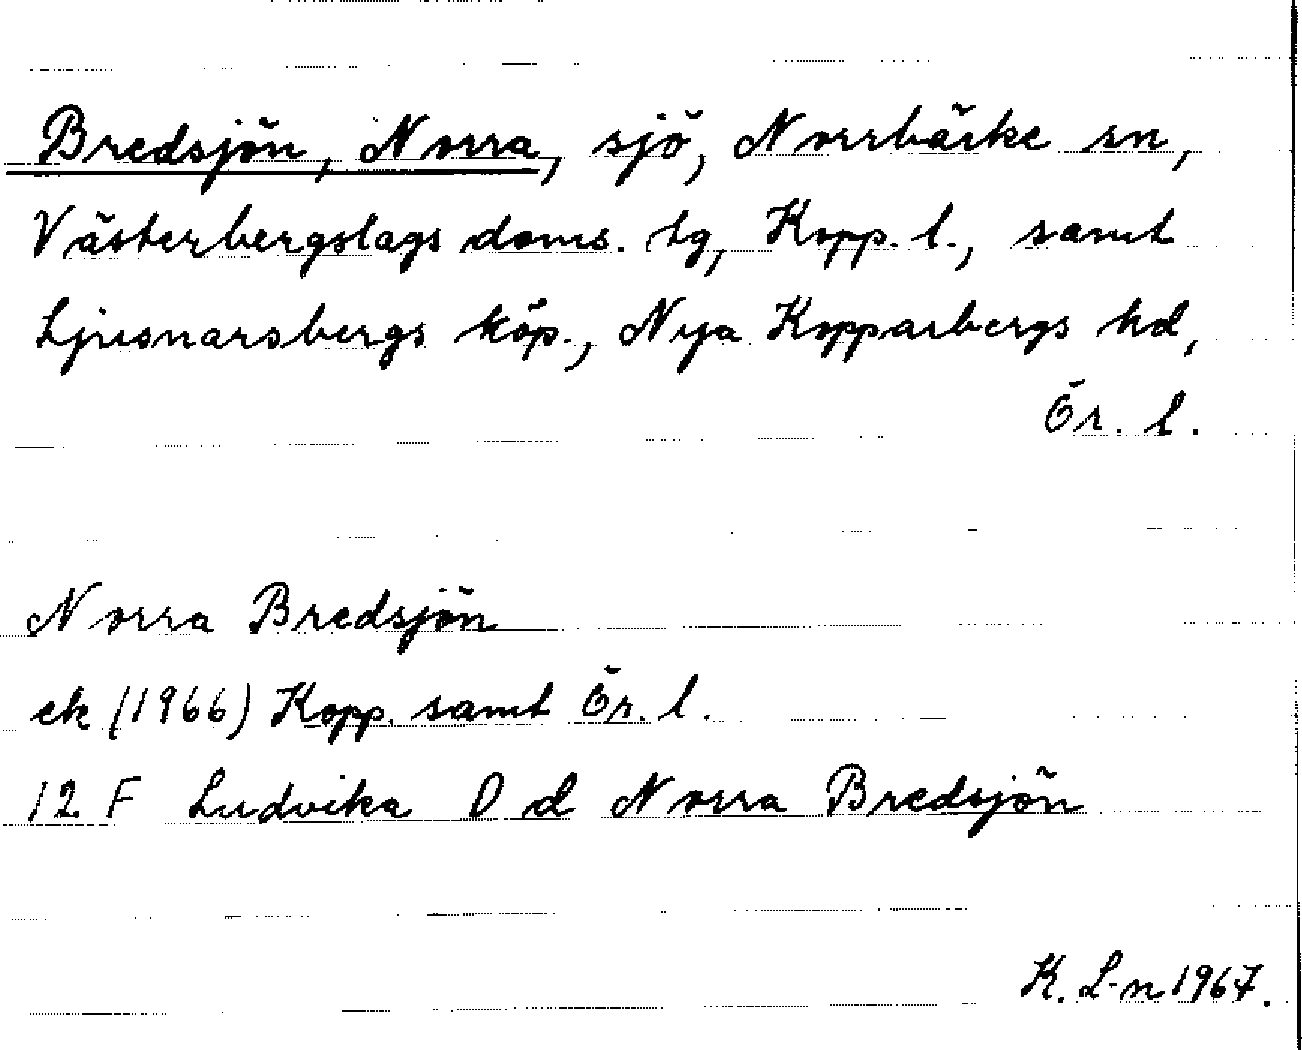 Bredsjön, Norra, sjö, Norrbärke sn,
Västerbergslags doms. tg, Kopp. l., samt
Ljusnarsbergs köp., Nya Kopparbergs hd,
Ör. l.
Norra Bredsjön
ek (1966) Kopp. samt Ör. l.
12 F Ludvika 0 d Norra Bredsjön
K. L-n 1967.